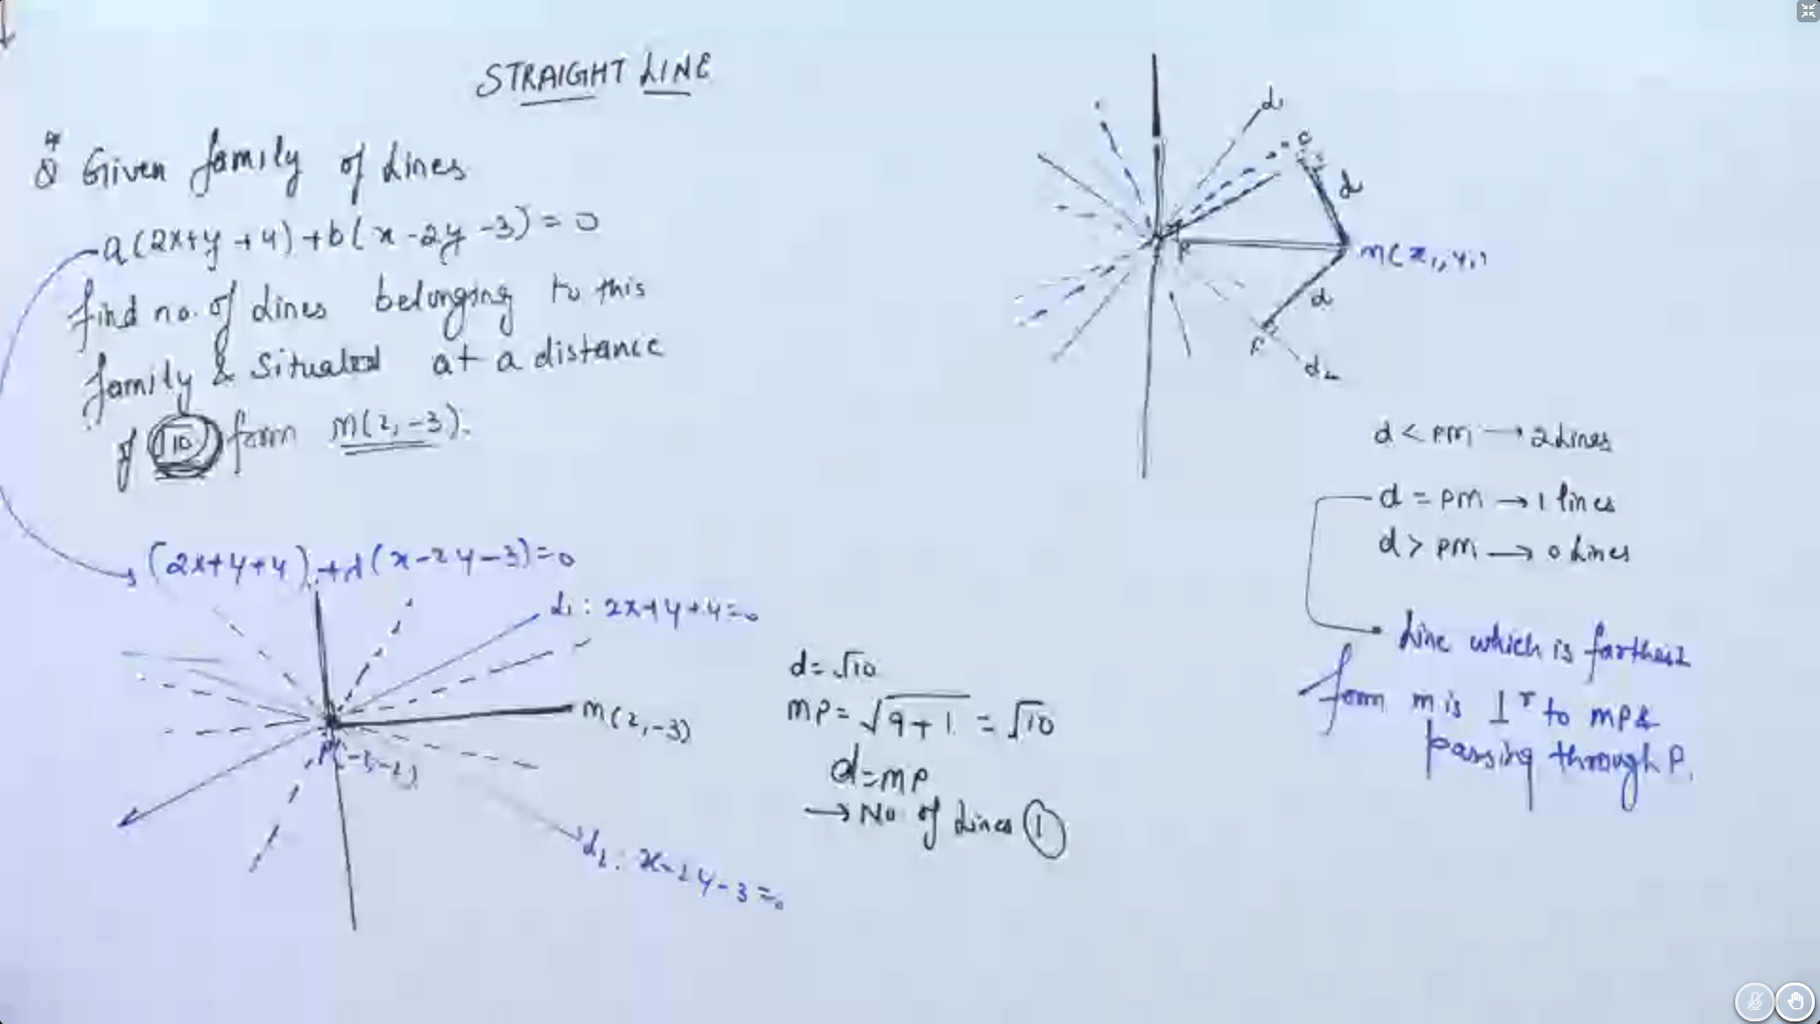 STRAIGHT LINE
Q Given family of Lines
a(2x+y+4)+b(x-2y-3)=0
find no. of Lines belonging to this
family & Situated at a distance
of √10 form M(2,-3).
(2x+y+4)+λ(x-2y-3)=0
L₁: 2x+y+4=0
M(2,-3)
L₂: x-2y-3=0
d=√10
MP=√9+1 = √10
d=MP
→ No. of Lines ①
L₁
d
M(x₁,y₁)
d
L₂
d < PM → 2 Lines
d = PM → 1 lines
d > PM → 0 Lines
Line which is farthest
form M is ⊥ʳ to MP &
passing through P.